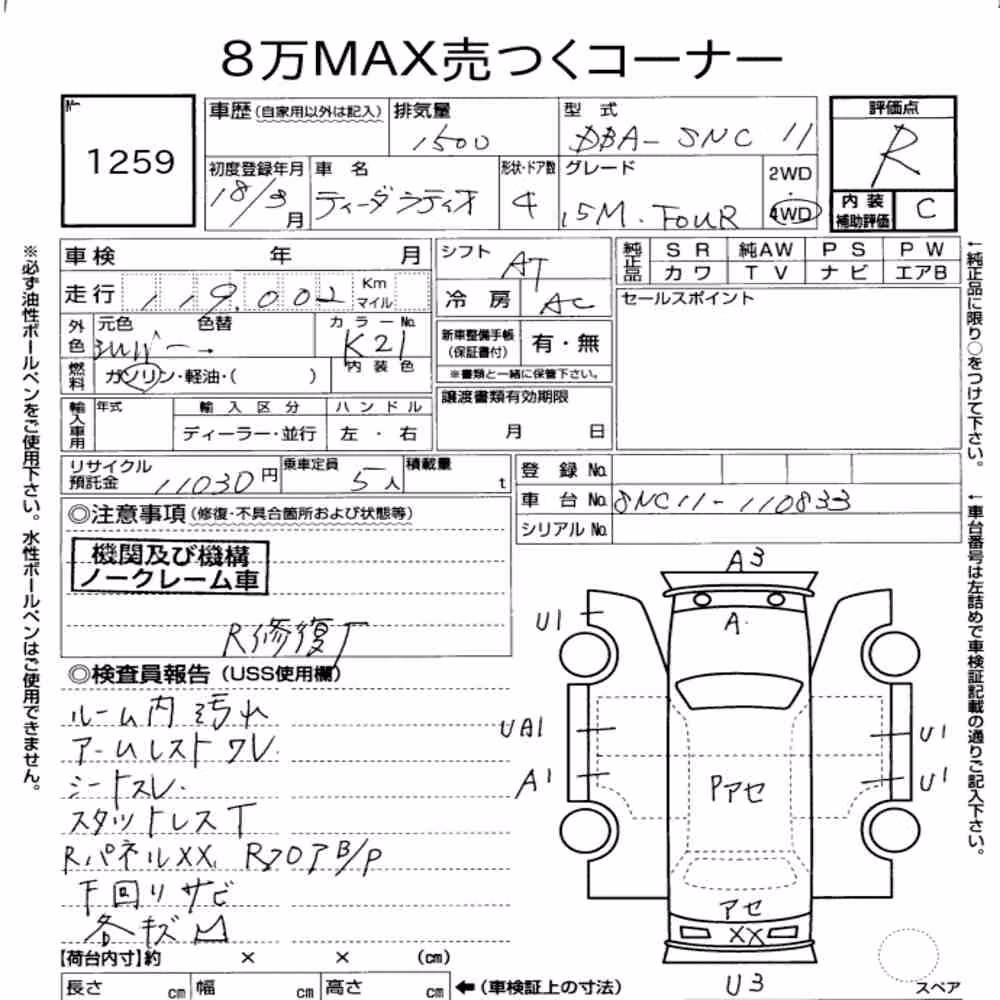 8万MAX売つくコーナー
№
1259
車歴(自家用以外は記入)
排気量
1500
型式
DBA-SNC 11
評価点
R
初度登録年月
18/3月
車名
ティーダラティオ
形状・ドア数
4
グレード
15M.FOUR
2WD
・
4WD
内装
補助評価
C
車検 年 月
走行 119,002 Km マイル
外色
元色 色替
シルバー →
カラー№
K21
燃料
ガソリン・軽油・( )
内装色
輸入車用
年式
輸入区分
ディーラー・並行
ハンドル
左・右
シフト
AT
冷房 AC
新車整備手帳
(保証書付)
有・無
※書類と一緒に保管下さい。
譲渡書類有効期限
月 日
純正品
SR 純AW PS PW
カワ TV ナビ エアB
セールスポイント
リサイクル
預託金
11030円
乗車定員
5人
積載量
t
登録 №
車台 № SNC11-110833
シリアル №
◎注意事項(修復・不具合箇所および状態等)
機関及び機構
ノークレーム車
R修復
◎検査員報告(USS使用欄)
ルーム内汚れ
アームレストワレ
シートスレ.
スタットレスT
RパネルXX RフロアB/P
下回りサビ
各キズ凹
【荷台内寸】約 × × (cm)
長さ cm 幅 cm 高さ cm
←(車検証上の寸法)
A3
U1
A.
UA1
U1
A1
U1
Pアセ
アセ
XX
U3
スペア
※必ず油性ボールペンをご使用下さい。水性ボールペンはご使用できません。
←純正品に限り○をつけて下さい。
←車台番号は左詰めで車検証記載の通りご記入下さい。